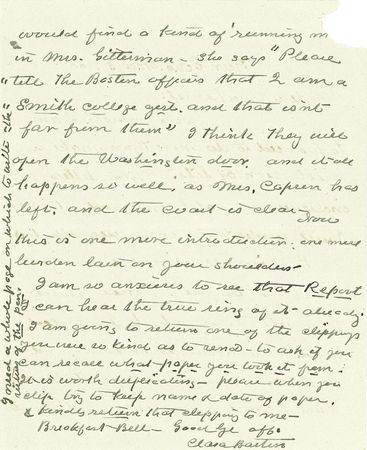 would find a kind of "running m
in Mrs. Gitterman - She says "Please
tell the Boston officers that I am a
Smith College gerl. and that isnt
far from them" I think they will
open the Washington door, and it all
happens so well, as Mrs. Capen has
left. and the coast is clear - Now
this is one more introduction. one more
burden lain on your shoulders -
I am so anxious to see that Report
I can hear the true ring of it - already.
I am going to return one of the clippings
you were so kind as to send - to ask if you
can recall what paper you took it from:
it is worth duplicating - please when you
clip try to keep name & date of paper.
& kindly return that clipping to me -
Breakfast Bell - Good bye
Clara Barton
I need a whole page on which to write the
virtues of the Pen.